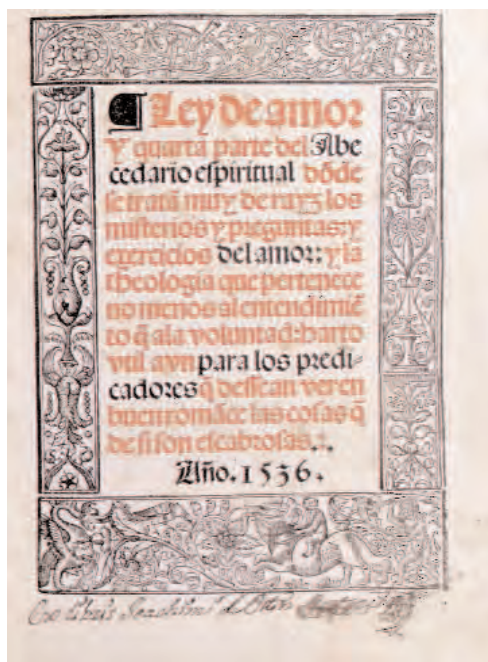 ¶ Ley de amor
Y quarta parte del Abe
cedario eſpiritual dõde
ſe tratã muy de rayz los
miſterios y preguntas: y
exercicios del amor: y la
theologia que pertenece
no menos al entendimiẽ
to q̃ ala voluntad: harto
vtil ayn para los predi-
cadores q̃ deſſean ver en
buen romãce las coſas q̃
de ſi ſon eſcabroſas.:.
Año. 1536.